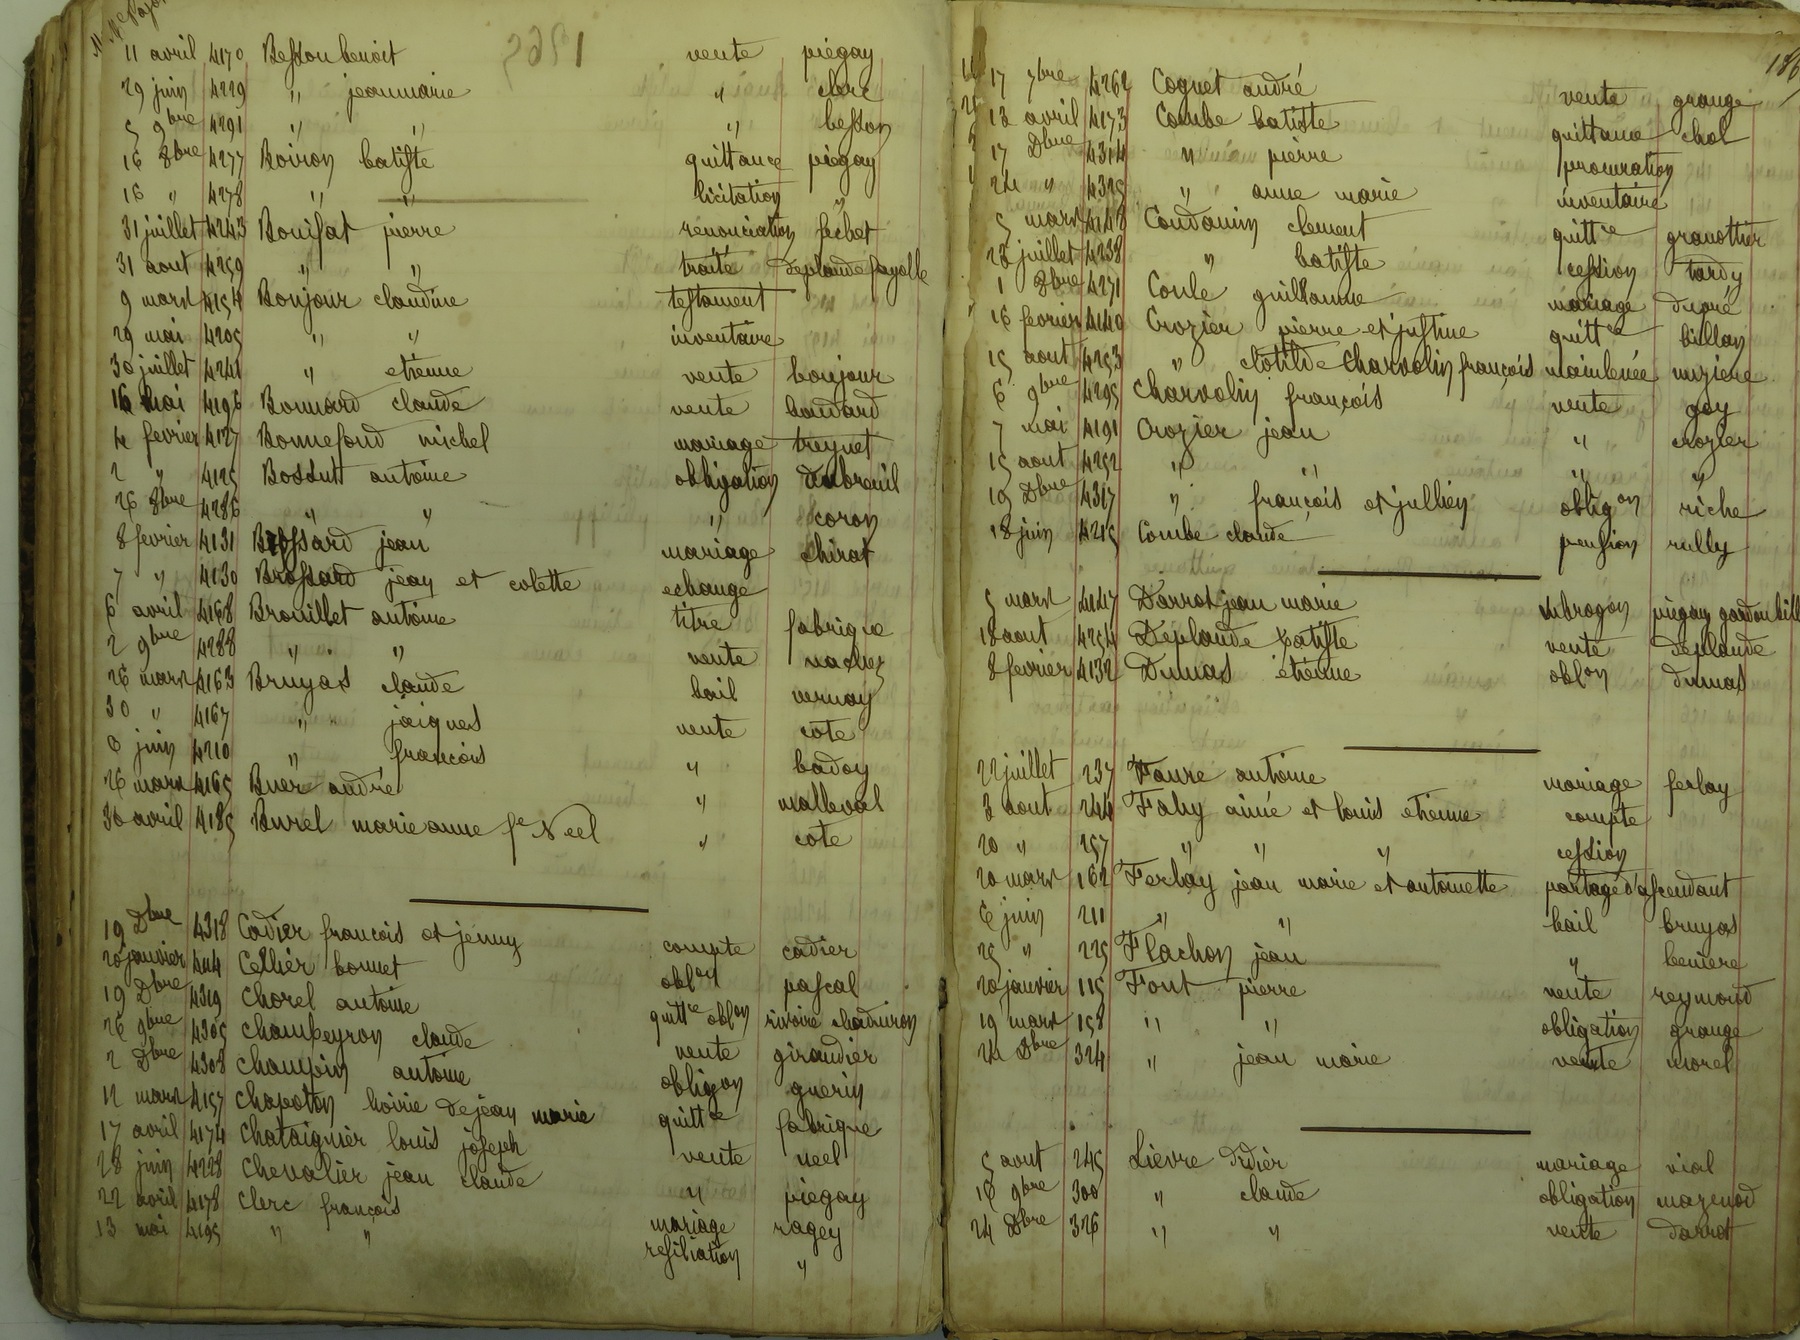 11 avril 4170 Besson benoit vente piégay
29 juin 4229 " jeanmarie " clerc
5 9bre 4291 " " " besson
16 8bre 4277 Boiron batiste quittance piégay
16 " 4278 " " licitation "
31 juillet 4243 Bonifat pierre renonciation
31 aout 4259 " " traité deplaude fayolle
9 mars 4154 Bonjour claudine testament
29 mai 4205 " " inventaire
30 juillet 4241 " etienne vente bonjour
16 mai 4196 Bonnard claude vente
4 fevrier 4127 Bonnefond michel mariage treynet
2 " 4125 Bossut antoine obligation dubreuil
26 8bre 4286 " " " coron
8 fevrier 4131 Brossard jean mariage chirat
7 " 4130 Brossard jean et colette echange
6 avril 4168 Brouillet antoine titre fabrique
2 9bre 4288 " " vente nachez
26 mars 4163 Bruyas claude bail vernay
30 " 4167 " jacques vente cote
6 juin 4210 " francois " badoy
26 mars 4165 Buer andré " malleval
30 avril 4185 Burel marie anne fe Neel " cote
19 Dbre 4318 Cadier francois et jenny compte cadier
20 janvier 4114 Cellier bonnet oblon pascal
19 Dbre 4319 Chorel antoine quittce oblon rivoire chaduiron
26 9bre 4305 Champeyron claude vente giraudier
2 Dbre 4308 Champin antoine obligon guerin
12 mars 4157 Chapoton hoirie de jean marie quittce fabrique
17 avril 4174 Chataignier louis joseph vente neel
28 juin 4228 Chevalier jean claude " piegay
22 avril 4178 Clerc françois mariage ragey
13 mai 4195 " " resiliation "
186
17 7bre 4262 Coquet andré vente grange
13 avril 4173 Combe batiste quittance chol
17 Dbre 4314 " pierre procuration
24 " 4325 " anne marie inventaire
5 mars 4148 Condamin clement quittce granottier
23 juillet 4238 " batiste cession tardy
1 8bre 4271 Conle guillaume mariage dupré
16 fevrier 4140 Crozier pierre et justine quittce billon
15 aout 4253 " clotilde Charvolin françois mainlevée
6 9bre 4295 Charvolin françois vente goy
7 mai 4191 Crozier jean " crozier
15 aout 4252 " " " "
19 Dbre 4317 " françois et jullien obligon riche
18 juin 4215 Combe claude pension rully
5 mars 4147 Darrot jean marie subrogon piegay
18 aout 4254 Deplaude batiste vente deplaude
8 fevrier 4132 Dumas etienne oblon dumas
22 juillet 237 Faure antoine mariage ferlay
3 aout 244 Fahy aimée et louis etienne compte
20 " 257 " " " cession
20 mars 162 Ferlay jean marie et antoinette partage d'ascendant
6 juin 211 " " bail bruyas
25 " 225 Flachon jean " beniere
20 janvier 115 Font pierre vente reymond
19 mars 158 " " obligation grange
24 Dbre 324 " jean marie vente morel
5 aout 245 Lievre Didier mariage vial
16 9bre 300 " claude obligation mazenod
24 Dbre 326 " " vente darrot